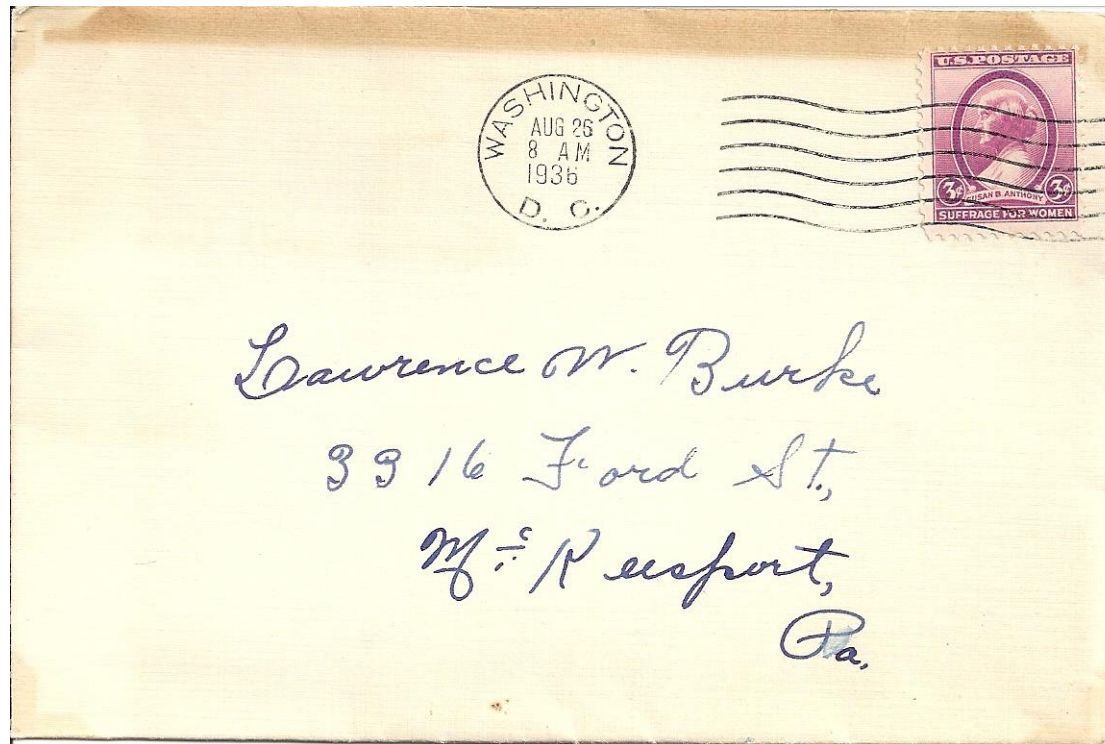 WASHINGTON
AUG 26
8 AM
1936
D. C.
U.S. POSTAGE
3¢ 3¢
SUSAN B. ANTHONY
SUFFRAGE FOR WOMEN
Lawrence W. Burke
3316 Ford St.,
Mc Keesport,
Pa.